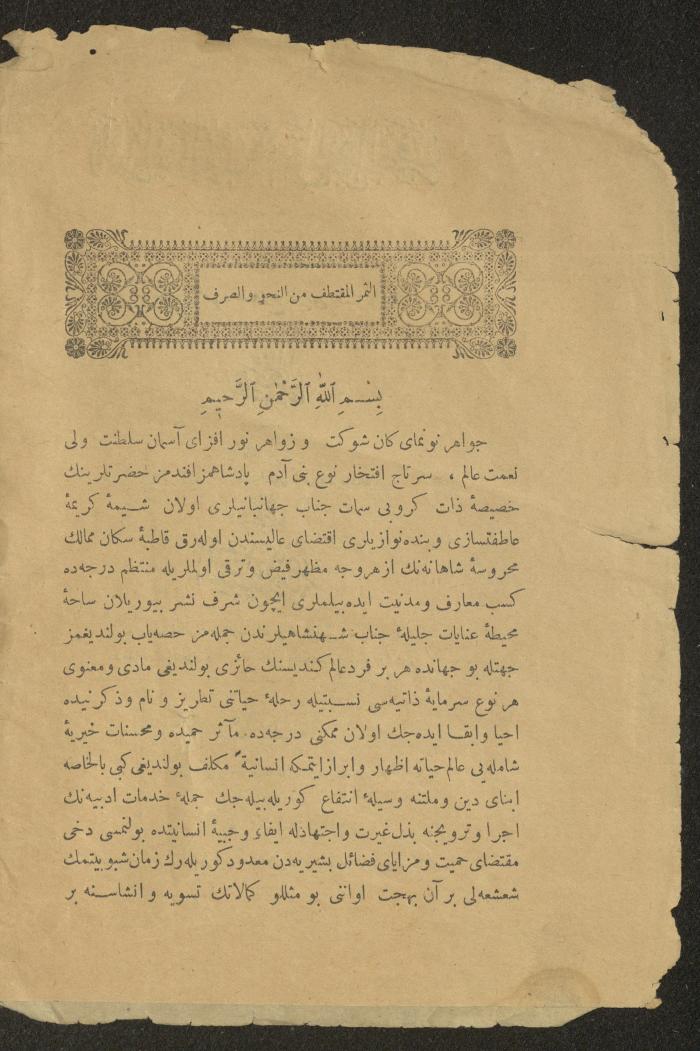 الثمر المقتطف من النحو والصرف
بِسْمِ ٱللّٰهِ ٱلرَّحْمٰنِ ٱلرَّحِيمِ
جواهر نونمای كان شوكت و زواهر نور افزای آسمان سلطنت ولی
نعمت عالم ، سرتاج افتخار نوع بنی آدم پادشاهمز افندمز حضرتلرینك
خصیصهٔ ذات كروبی سمات جناب جهانبانیلری اولان شیمهٔ كریمهٔ
عاطفتسازی و بنده‌نوازیلری اقتضای عالیسندن اوله‌رق قاطبهٔ سكان ممالك
محروسهٔ شاهانه‌نك از هر وجه مظهر فیض و ترقی اولملریله منتظم درجه‌ده
كسب معارف ومدنیت ایده‌بیلملری ایچون شرف نشر بیوریلان ساحهٔ
محیطهٔ عنایات جلیلهٔ جناب شهنشاهیلرندن جمله‌مز حصه‌یاب بولندیغمز
جهتله بو جهانده هر بر فرد عالم كندیسنك حائزی بولندیغی مادی و معنوی
هر نوع سرمایهٔ ذاتیه‌سی نسبتیله رحلهٔ حیاتنی تطریز و نام و ذكرنیده
احیا وابقا ایده‌جك اولان ممكنی درجه‌ده مآثر حمیده و محسنات خیریهٔ
شامله‌یی عالم حیاته اظهار وابراز ایتمكه انسانیةً مكلف بولندیغی كبی بالخاصه
ابنای دین و ملتنه وسیلهٔ انتفاع كوریله‌بیله‌جك جملهٔ خدمات ادبیه‌نك
اجرا و ترویجنه بذل غیرت واجتهادله ایفاء وجیبهٔ انسانیتده بولنمسی دخی
مقتضای حمیت و مزایای فضائل بشریه‌دن معدود كوریله‌رك زمان شبوبیتمك
شعشعه‌لی بر آن بهجت اواننی بو مثللو كمالاتك تسویه و انشاسنه بر